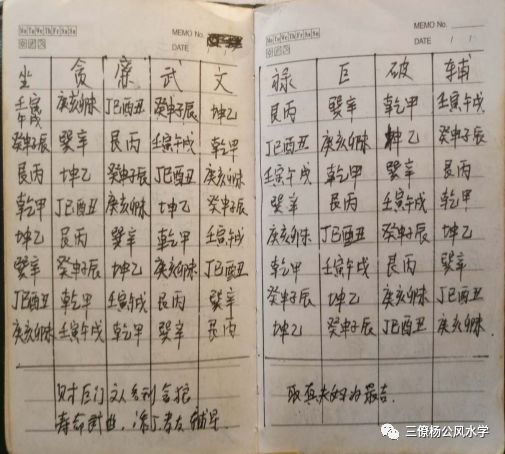 Mo Tu We Th Fr Sa Su MEMO No.
DATE / /
坐 贪 廉 武 文
壬寅午戌 庚亥卯未 丁巳酉丑 癸申子辰 坤乙
癸申子辰 巽辛 艮丙 壬寅午戌 乾甲
艮丙 坤乙 癸申子辰 丁巳酉丑 庚亥卯未
乾甲 丁巳酉丑 庚亥卯未 坤乙 癸申子辰
坤乙 艮丙 巽辛 乾甲 壬寅午戌
巽辛 癸申子辰 坤乙 庚亥卯未 丁巳酉丑
丁巳酉丑 乾甲 壬寅午戌 艮丙 巽辛
庚亥卯未 壬寅午戌 乾甲 巽辛 艮丙
巨门 文人 贪狼
寿命武曲, 辅星
Mo Tu We Th Fr Sa Su MEMO No.
DATE / /
禄 巨 破 辅
艮丙 巽辛 乾甲 壬寅午戌
丁巳酉丑 庚亥卯未 坤乙 癸申子辰
壬寅午戌 乾甲 巽辛 艮丙
巽辛 艮丙 壬寅午戌 乾甲
庚亥卯未 丁巳酉丑 癸申子辰 坤乙
乾甲 壬寅午戌 艮丙 巽辛
癸申子辰 坤乙 庚亥卯未 丁巳酉丑
坤乙 癸申子辰 丁巳酉丑 庚亥卯未
取 夫妇为最吉.
三僚杨公风水学